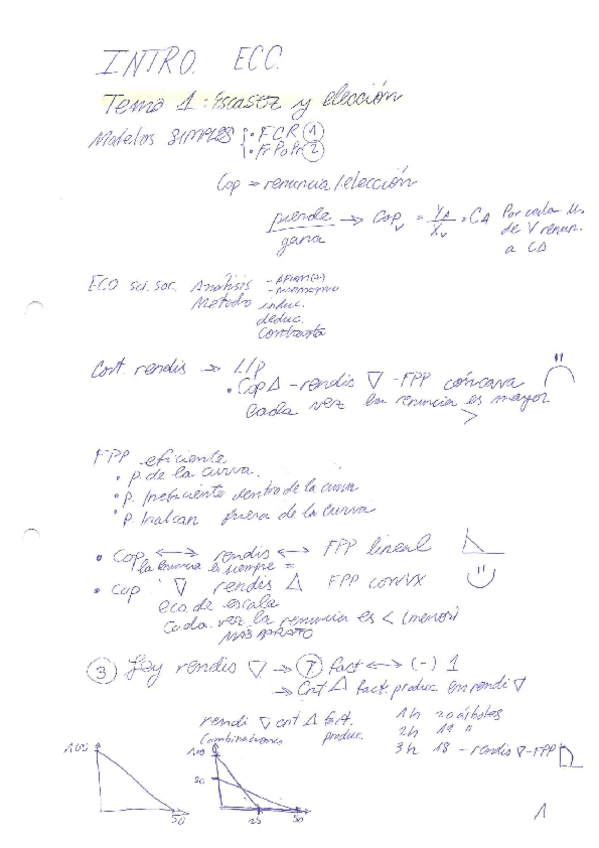 INTRO. ECO.
Tema 1: Escasez y elección
Modelos SIMPLES { • FCR ①
• FrPoPr ②
Cop = renuncia/elección
pierde / gana → Cop_v = Y_A / X_v = CA Por cada u. de V renun. a CA
ECO sci. soc. Analisis - AFIRM(+)
- NORMATIVO
Metodo induc.
deduc.
Contrasta
rendis → L/p
• Cop △ - rendis ▽ - FPP cóncava
Cada vez la renuncia es mayor
>
FPP eficiente
• p. de la curva.
• p. Ineficiente dentro de la curva
• p. Inalcan fuera de la curva
• Cop ↔ rendis ↔ FPP lineal
la renuncia es siempre =
• cop ▽ rendis △ FPP convx
eco. de escala
Cada vez la renuncia es < (menor)
MAS BARATO
③ Ley rendis ▽ → Ⓣ fact ↔ (-) 1
→ Cnt △ fact. produc. en rendi ▽
rendi ▽ cnt △ fact.
Combinaciones produc.
1h 20 árboles
2h 19 "
3h 18 - rendis ▽ - FPP
100
50
100
50
25 50
1